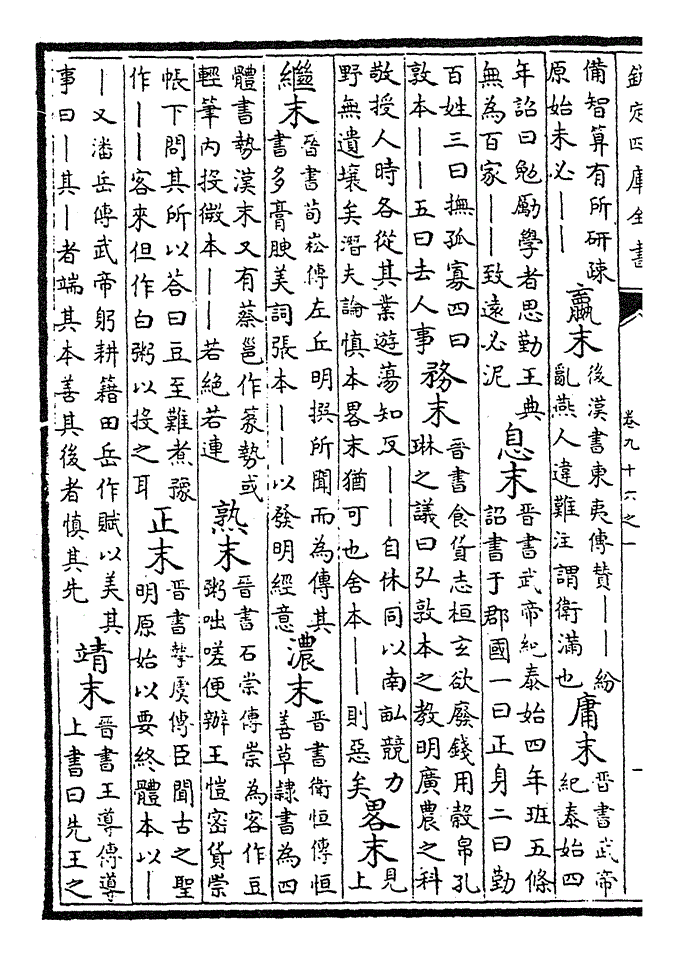 欽定四庫全書
卷九十六之一
一
備智算有所研疎
原始未必｜｜
嬴末
後漢書東夷傳賛｜｜紛
亂燕人違難注謂衛滿也
庸末
晉書武帝
紀泰始四
年詔曰勉勵學者思勤王典
無為百家｜｜致遠必泥
息末
晉書武帝紀泰始四年班五條
詔書于郡國一曰正身二曰勤
百姓三曰撫孤寡四曰
敦本｜｜五曰去人事
務末
晉書食貨志桓玄欲廢錢用穀帛孔
琳之議曰弘敦本之教明廣農之科
敬授人時各從其業遊蕩知反｜｜自休同以南畝競力
野無遺壤矣潛夫論慎本畧末猶可也舍本｜｜則惡矣
畧末
見
上
繼末
晉書荀崧傳左丘明撰所聞而為傳其
書多膏腴美詞張本｜｜以發明經意
濃末
晉書衛恒傳恒
善草隸書為四
體書勢漢末又有蔡邕作篆勢或
輕筆内投微本｜｜若絕若連
熟末
晉書石崇傳崇為客作豆
粥咄嗟便辦王愷密貨崇
帳下問其所以荅曰豆至難煮豫
作｜｜客來但作白粥以投之耳
正末
晉書摯虞傳臣聞古之聖
明原始以要終體本以｜
｜又潘岳傳武帝躬耕籍田岳作賦以美其
事曰｜其｜者端其本善其後者慎其先
靖末
晉書王導傳導
上書曰先王之